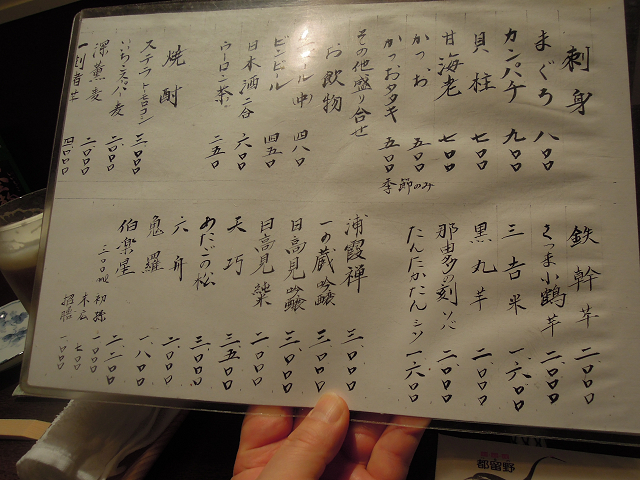 刺身
まぐろ 八〇〇
カンパチ 九〇〇
貝柱 七〇〇
甘海老 七〇〇
かつお 五〇〇
かつおタタキ 五〇〇
季節のみ
その他盛り合せ
お飲物
ビール(中) 四八〇
ビンビール 四五〇
日本酒二合 六〇〇
ウーロン茶 二五〇
焼酎
三、〇〇〇
いいちこ 麦 二、〇〇〇
深薫麦 二、〇〇〇
四、〇〇〇
鉄幹 芋 二、〇〇〇
さつま小鶴 芋 二、〇〇〇
三吉 米 一、六〇〇
黒丸 芋 二、〇〇〇
那由多の刻 ソバ 二、〇〇〇
たんたかたん シソ 一、六〇〇
浦霞禅 三、〇〇〇
一の蔵 吟醸 三、〇〇〇
日高見 吟醸 三、〇〇〇
日高見 純 二、〇〇〇
天巧 三、五〇〇
あたごの松 三、〇〇〇
六舟 二、〇〇〇
鬼羅 一、八〇〇
伯楽星 二、二〇〇
三〇〇ml 初孫 一、〇〇〇
末広 七〇〇
招膳 一、〇〇〇
都留野